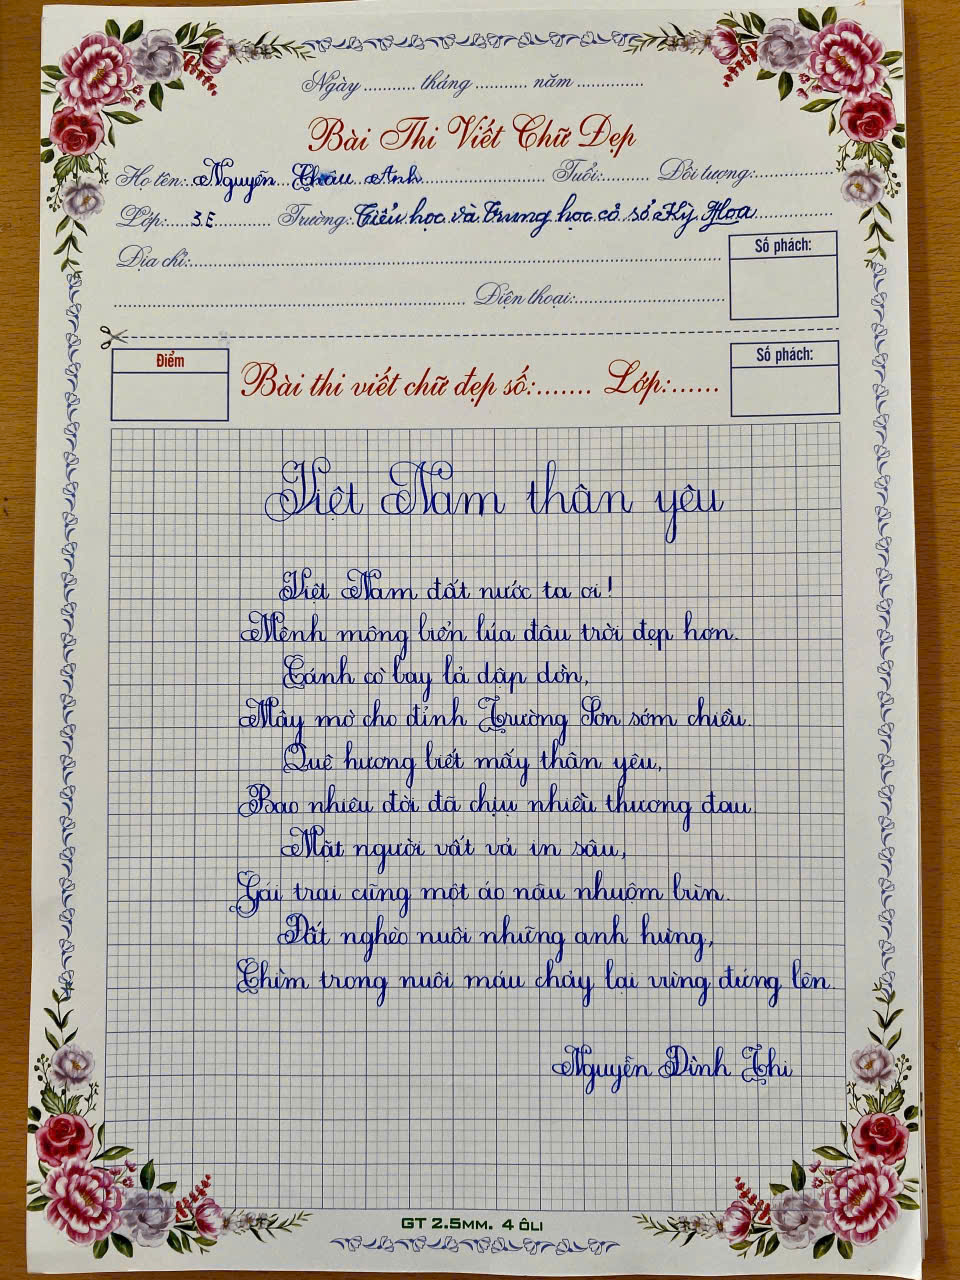 Ngày ........... tháng ........... năm ..............
Bài Thi Viết Chữ Đẹp
Họ tên: Nguyễn Châu Anh Tuổi: Đối tượng:
Lớp: 3E Trường: Tiểu học và Trung học cơ sở Kỳ Hoa
Số phách:
Địa chỉ:
Điện thoại:
Điểm
Bài thi viết chữ đẹp số:....... Lớp:......
Số phách:
Việt Nam thân yêu
Việt Nam đất nước ta ơi!
Mênh mông biển lúa đâu trời đẹp hơn.
Cánh cò bay lả dập dờn,
Mây mờ che đỉnh Trường Sơn sớm chiều.
Quê hương biết mấy thân yêu,
Bao nhiêu đời đã chịu nhiều thương đau.
Mặt người vất vả in sâu,
Gái trai cũng một áo nâu nhuộm bùn.
Đất nghèo nuôi những anh hùng,
Chìm trong nuôi máu chảy lại vùng đứng lên.
Nguyễn Đình Thi
GT 2.5MM. 4 ÔLI